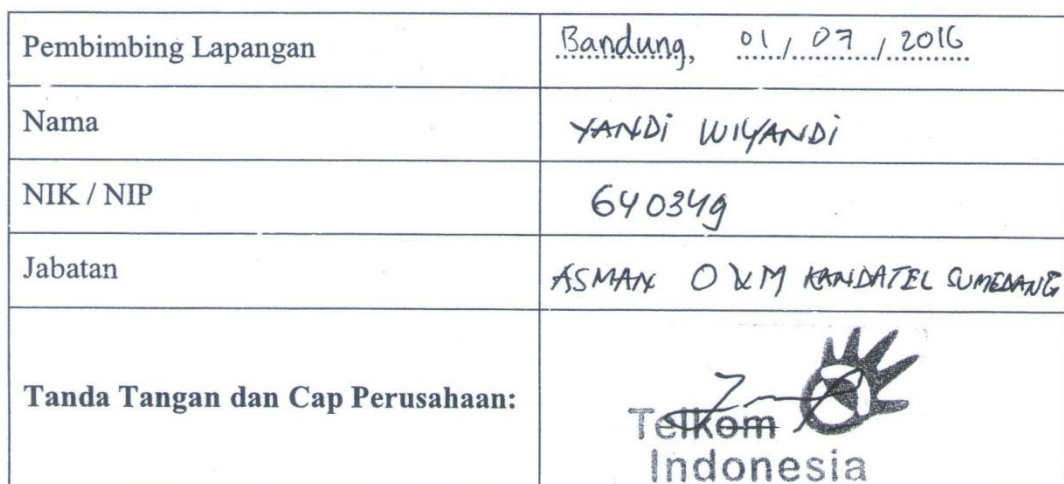 Pembimbing Lapangan Bandung, 01/07/2016
Nama YANDi WILYANDi
NIK / NIP 640349
Jabatan ASMAN O & M KANDATEL SUMEDANG
Tanda Tangan dan Cap Perusahaan:
Telkom
Indonesia